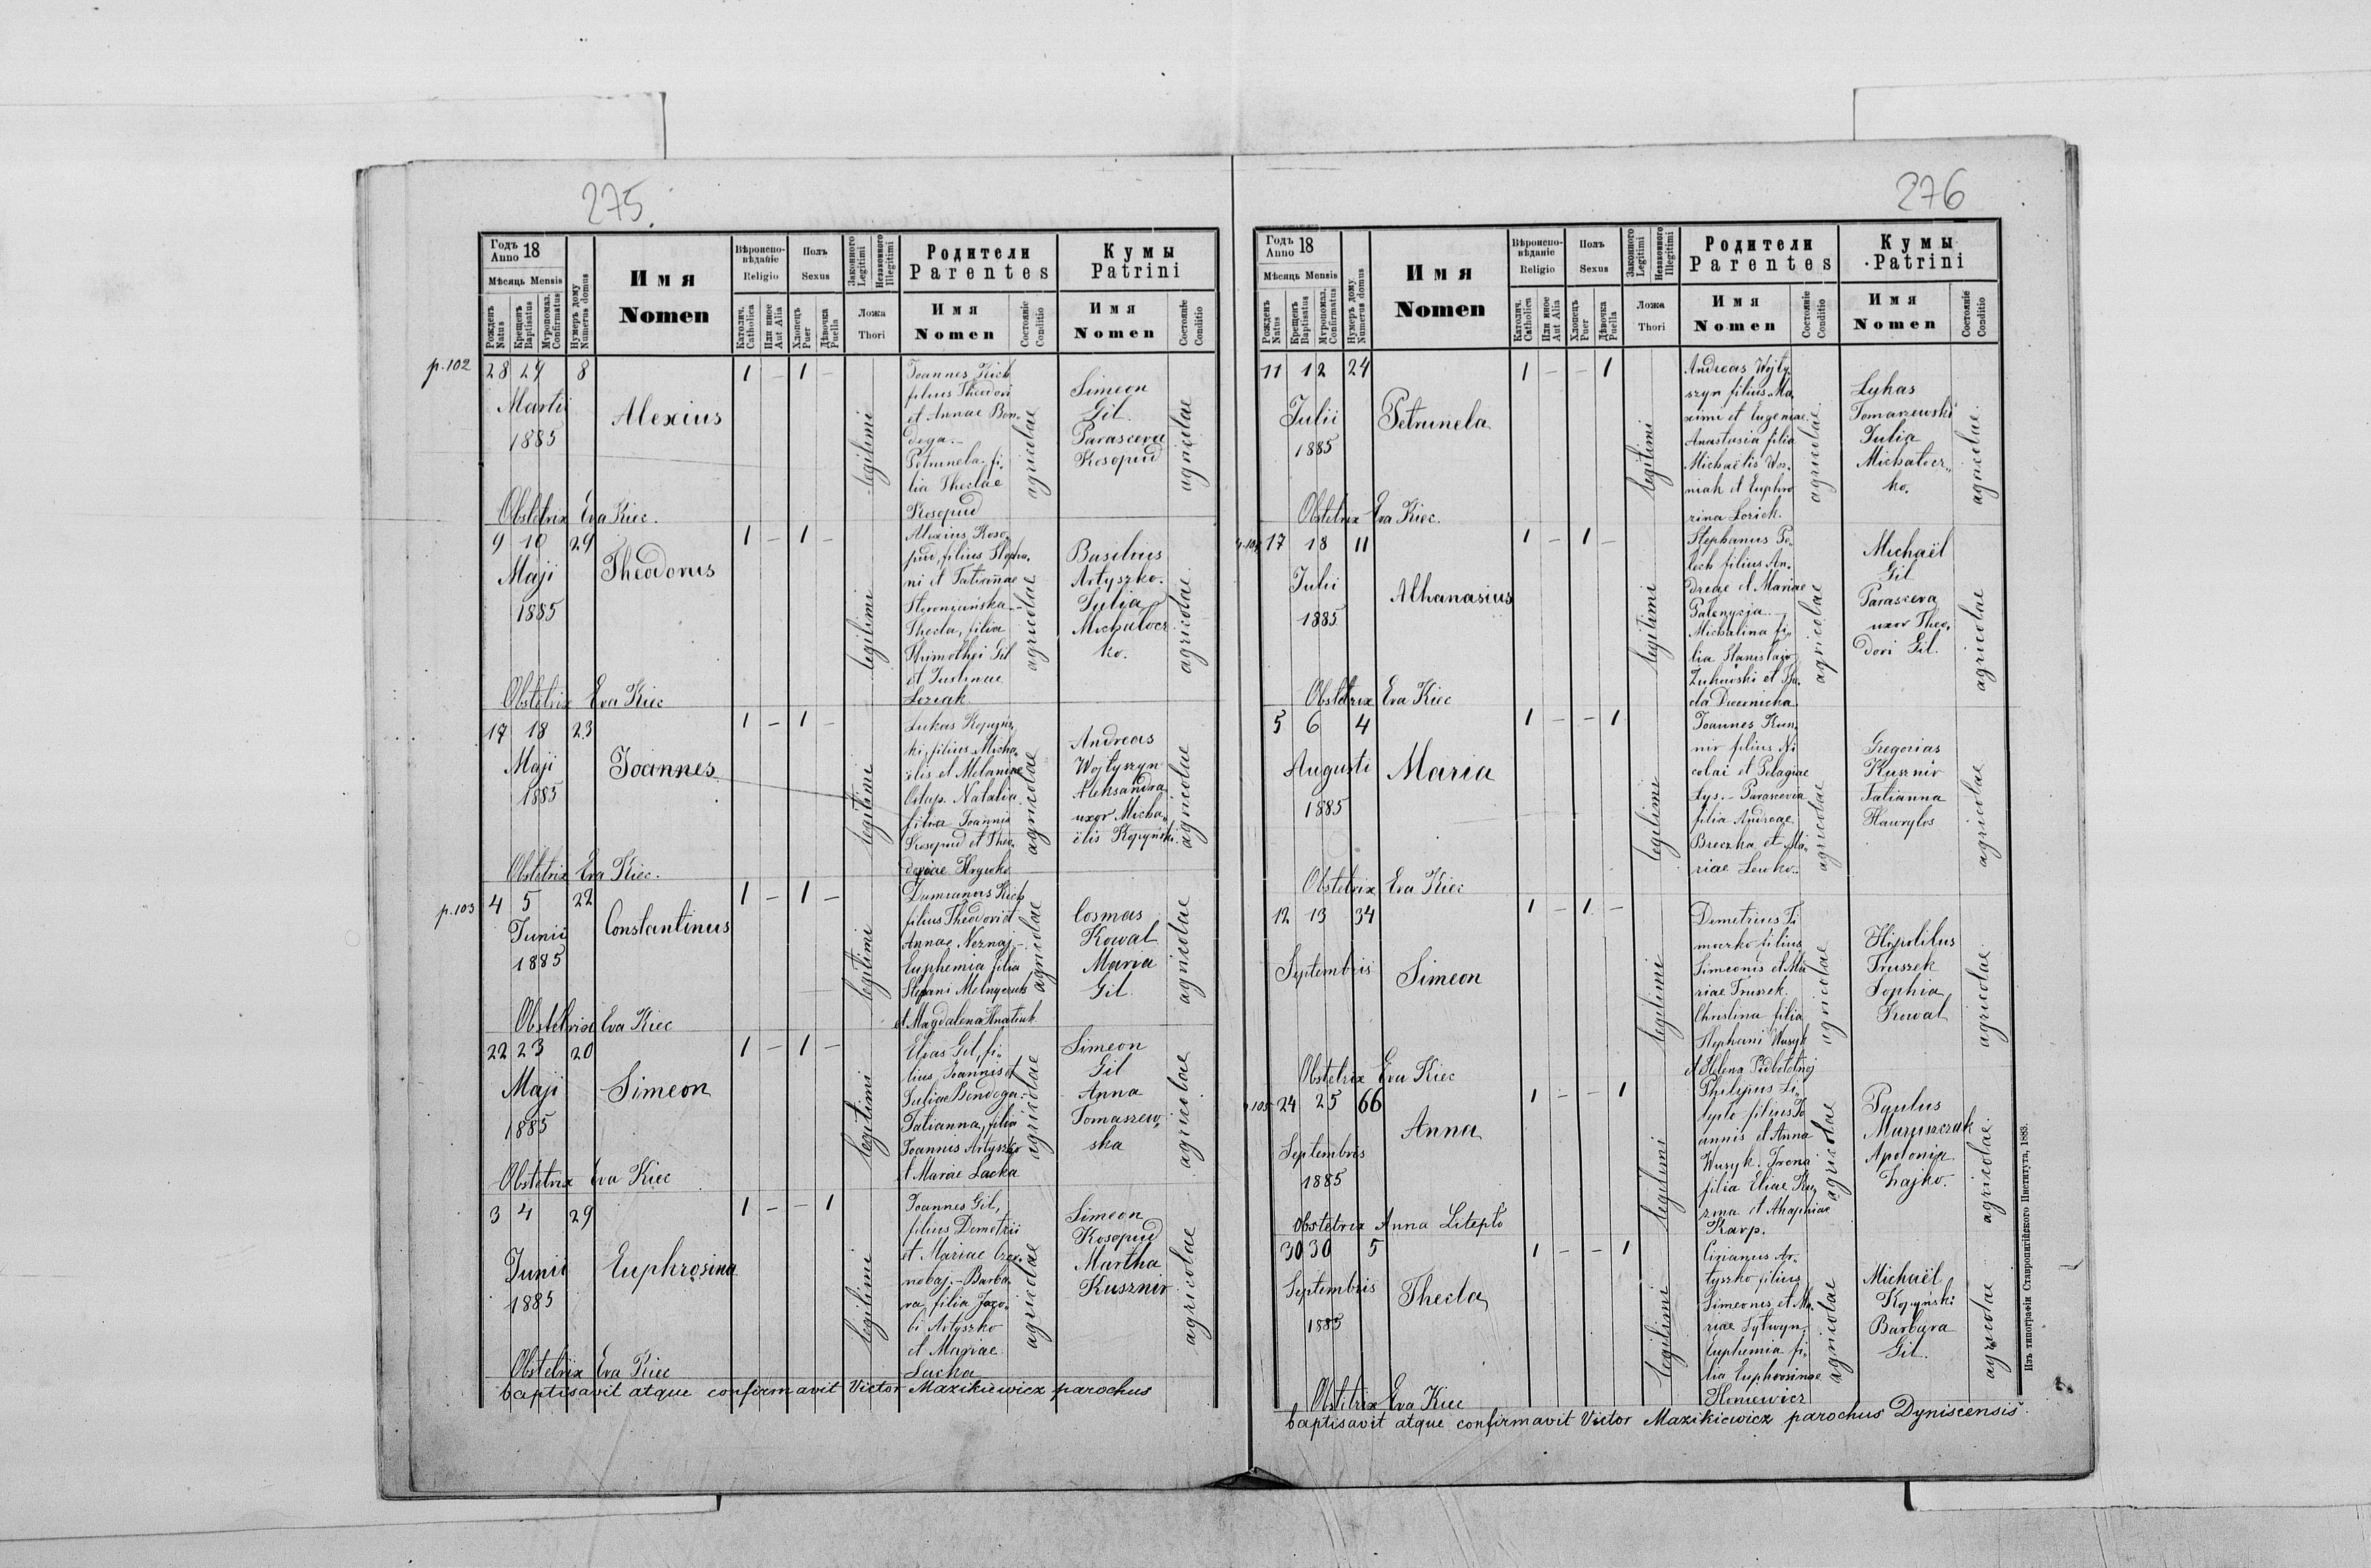 275.
Годъ 18
Anno
Мѣсяць Mensis
Рожденъ Natus
Крещенъ Baptisatus
Муропомаз. Confirmatus
Нумеръ дому Numerus domus
Имя
Nomen
Вѣроиспо-
вѣданіе
Religio
Католич. Catholica
Или иное Aut Alia
Полъ
Sexus
Хлопецъ Puer
Дѣвочка Puella
Законного Legitimi
Незаконного Illegitimi
Ложа
Thori
Родители
Parentes
Имя
Nomen
Состояніе Conditio
Кумы
Patrini
Имя
Nomen
Состояніе Conditio
p.102
28 29 8
Martii
1885
Alexius
1 - 1 -
legitimi
Joannes Kich
filius Theodori
et Annae Ben-
dega.-
Petrunela fi-
lia Theclae
Kosopud
agricolae
Simeon
Gil
Parasceva
Kosopud
agricolae
Obstetrix Eva Kiec.
9 10 29
Maji
1885
Theodorus
1 - 1 -
legitimi
Alexius Koso-
pud, filius Stepha-
ni et Tatiannae
Thecla, filia
Thimothei Gil
et Justinae
Loziak
agricolae
Basilius
Artyszko.
Julia
Michalocz
ko.
agricolae
Obstetrix Eva Kiec
17 18 23
Maji
1885
Joannes
1 - 1 -
legitimi
Lukas Kopyńs
ki, filius Micha-
elis et Melaniae
Ostap. Natalia
filia Joannis
Kosopud et Theo-
doziae Hryćko
agricolae
Andreas
Wojtyszyn
Aleksandra
uxor Micha-
ëlis Kopyński.
agricolae
Obstetrix Eva Kiec.
p.103
4 5 22
Junii
1885
Constantinus
1 - 1 -
legitimi
Damianus Kich
filius Theodori et
Annae Neznaj -
Euphemia filia
Stefani Melnyczuk
et Magdalena Hnatiuk
agricolae
Cosmas
Kowal
Maria
Gil.
agricolae
Obstetrix Eva Kiec
22 23 20
Maji
1885
Simeon
1 - 1 -
legitimi
Elias Gil, fi-
lius Joannis et
Julia Bendega.-
Tatianna, filia
Joannis Artyszko
et Mariae Lacka
agricolae
Simeon
Gil
Anna
Tomaszew-
ska
agricolae
Obstetrix Eva Kiec
3 4 29
Junii
1885
Euphrosina
1 - - 1
legitimi
Joannes Gil,
filius Demetrii
et Mariae Czor-
nobaj.- Barba-
ra filia Jaco-
bi Artyszko
et Mariae
Lacka
agricolae
Simeon
Kosopud
Martha
Kusznir
agricolae
Obstetrix Eva Kiec
baptisavit atque confirmavit Victor Mazikiewicz parochus
276
Годъ 18
Anno
Мѣсяць Mensis
Рожденъ Natus
Крещенъ Baptisatus
Муропомаз. Confirmatus
Нумеръ дому Numerus domus
Имя
Nomen
Вѣроиспо-
вѣданіе
Religio
Католич. Catholica
Или иное Aut Alia
Полъ
Sexus
Хлопецъ Puer
Дѣвочка Puella
Законного Legitimi
Незаконного Illegitimi
Ложа
Thori
Родители
Parentes
Имя
Nomen
Состояніе Conditio
Кумы
Patrini
Имя
Nomen
Состояніе Conditio
11 12 24
Julii
1885
Petrunela
1 - - 1
legitimi
Andreas Wojty-
szyn filius Ma-
ximi et Eugeniae.
Anastasia filia
Michaëlis Woz-
niak et Euphro
zina Lozick.
agricolae
Lukas
Tomaszewski
Julia
Michalocz-
ko.
agricolae
Obstetrix Eva Kiec.
p.104
17 18 11
Julii
1885
Athanasius
1 - 1 -
legitimi
Stephanus Po-
lech filius An-
dreae et Mariae
Michalina fi-
lia Stanislai
agricolae
Michaël
Gil
Parasceva
uxor Theo-
dori Gil.
agricolae
Obstetrix Eva Kiec
5 6 4
Augusti
1885
Maria
1 - - 1
legitimi
Joannes Kusz-
nir filius Ni
colai et Pelagiae
Lys.- Parascevia
filia Andreae
Breczka et Ma-
riae Lewko.
agricolae
Gregorias
Kusznir
Tatianna
Hawrylos
agricolae
Obstetrix Eva Kiec
12 13 34
Septembris
Simeon
1 - 1 -
legitimi
Demetrius Ti
moczko filius
Simeonis et Ma
riae Truszek.
Christina filia
Stephani Wusyk
et Helena
agricolae
Hipolitus
Truszek
Sophia
Kowal
agricolae
Obstetrix Eva Kiec
p.105
24 25 66
Septembris
1885
Anna
1 - - 1
legitimi
Philipus Li-
tepło filius Jo
annis et Anna
Wusyk. Irena
filia Eliae Kuz
zma et Ahapiae
Karp.
agricolae
Paulus
Maruszczak
Apolonia
Zajko.
agricolae
Obstetrix Anna Litepło
30 30 5
Septembris
1885
Thecla
1 - - 1
legitimi
Cirianus Ar-
tyszko filius
Simeonis et Ma-
riae Lytwyn.
Euphemia fi-
lia Euphrosinae
Honiewicz
agricolae
Michaël
Kopyński
Barbara
Gil.
agricolae
Obstetrix Eva Kiec
baptisavit atque confirmavit Victor Mazikiewicz parochus Dyniscensis.
Изъ типографіи Ставропигійского Института, 1883.